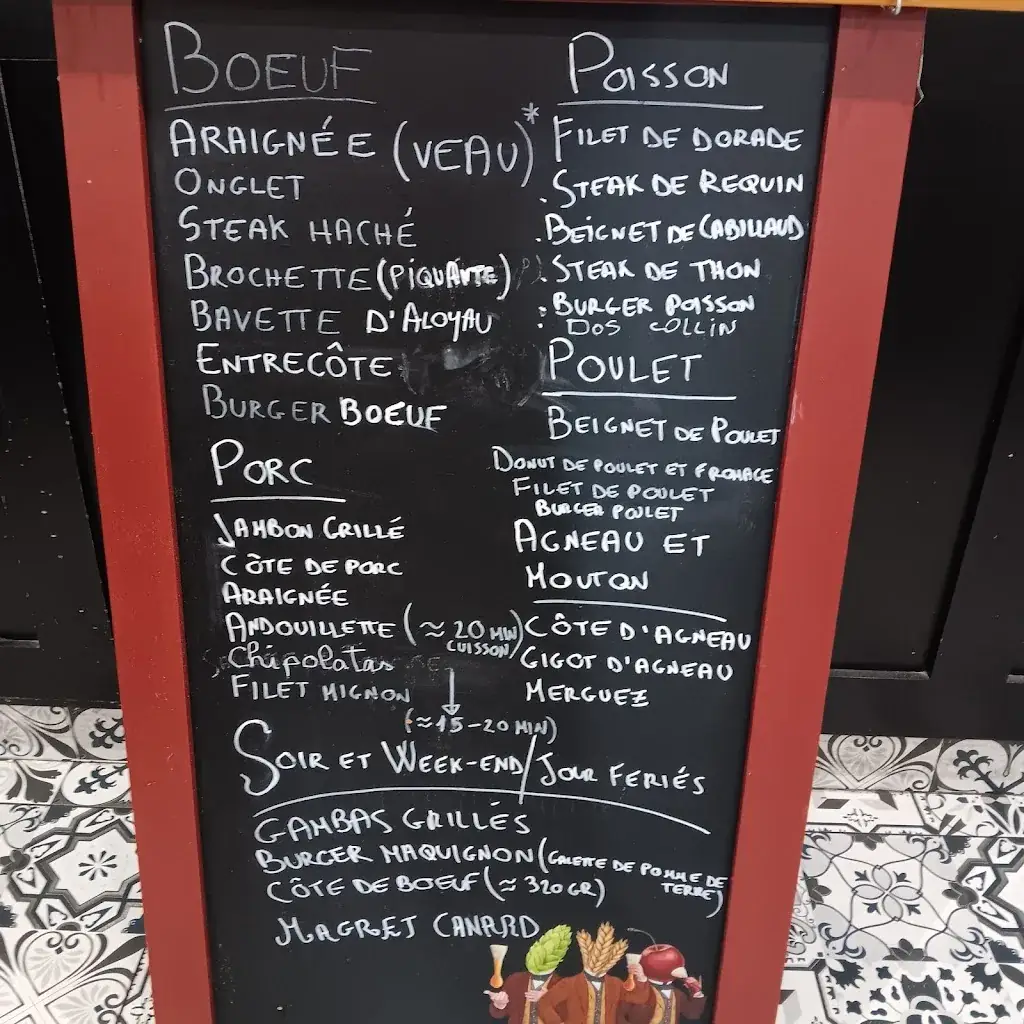 BOEUF
ARAIGNÉE (VEAU)*
ONGLET
STEAK HACHÉ
BROCHETTE (PIQUANTE)
BAVETTE D'ALOYAU
ENTRECÔTE
BURGER BOEUF
PORC
JAMBON GRILLÉ
CÔTE DE PORC
ARAIGNÉE
ANDOUILLETTE (≈ 20 MIN CUISSON)
Chipolatas
FILET MIGNON
(≈15-20 MIN)
POISSON
FILET DE DORADE
. STEAK DE REQUIN
. BEIGNET DE CABILLAUD
. STEAK DE THON
. BURGER POISSON
. DOS COLLIN
POULET
BEIGNET DE POULET
DONUT DE POULET ET FROMAGE
FILET DE POULET
BURGER POULET
AGNEAU ET
MOUTON
CÔTE D'AGNEAU
GIGOT D'AGNEAU
MERGUEZ
SOIR ET WEEK-END/JOUR FERIÉS
GAMBAS GRILLÉS
BURGER MAQUIGNON (GALETTE DE POMME DE TERRE)
CÔTE DE BOEUF (≈ 320 GR)
MAGRET CANARD